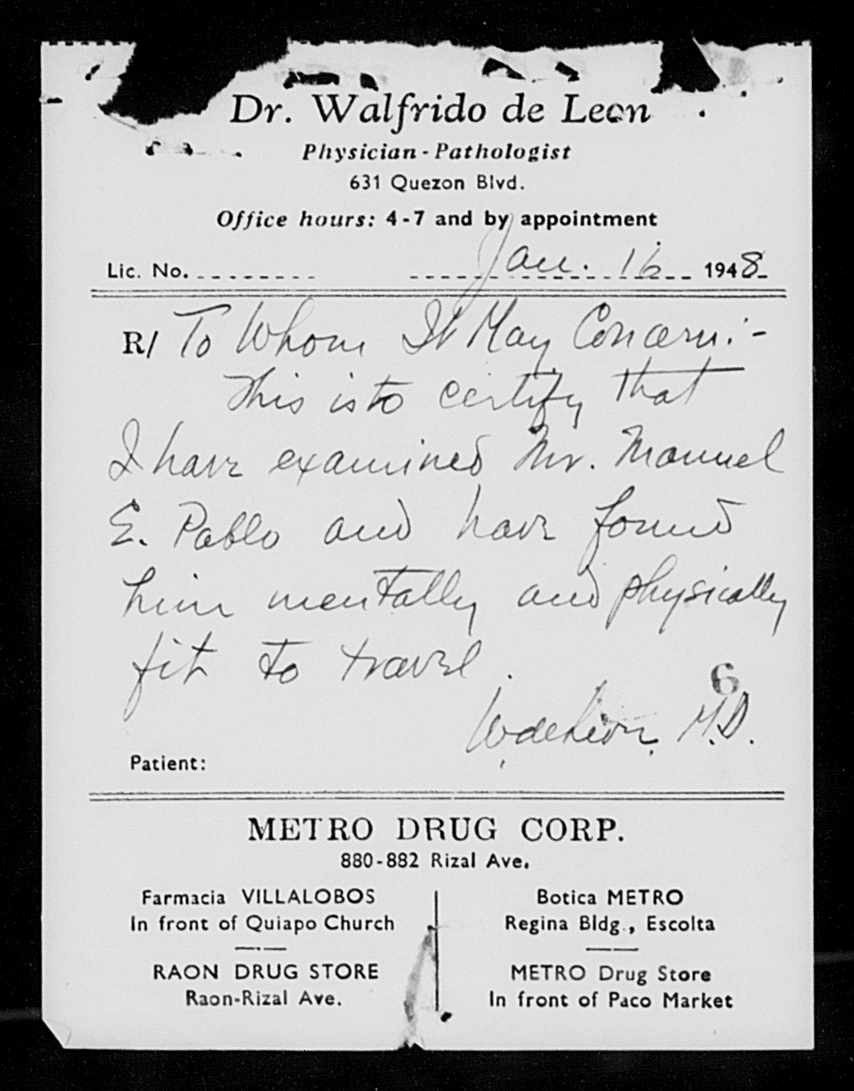 Dr. Walfrido de Leon
Physician - Pathologist
631 Quezon Blvd.
Office hours: 4-7 and by appointment
Lic. No. Jan. 16 1948
R/ To Whom It May Concern:-
This is to certify that
I have examined Mr. Manuel
E. Pablo and have found
him mentally and physically
fit to travel.
6
W. de Leon, M.D.
Patient:
METRO DRUG CORP.
880-882 Rizal Ave.
Farmacia VILLALOBOS
In front of Quiapo Church
RAON DRUG STORE
Raon-Rizal Ave.
Botica METRO
Regina Bldg., Escolta
METRO Drug Store
In front of Paco Market